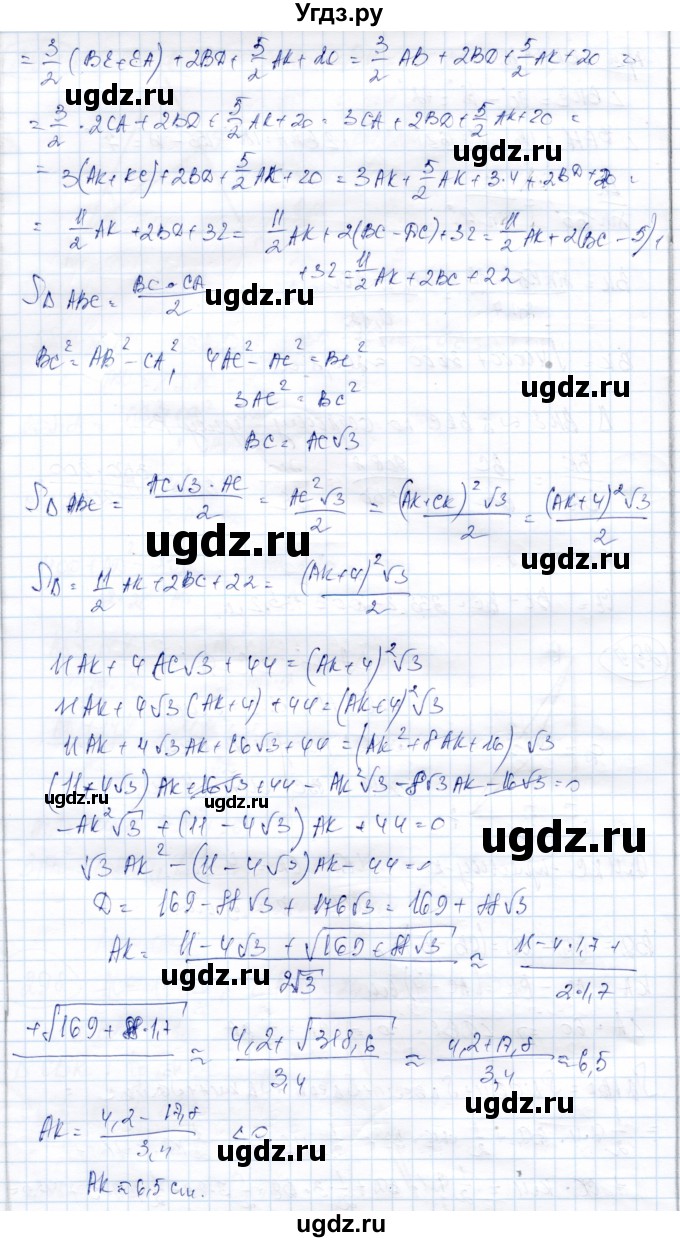 Угдз.ру
= 3/2 (BE+EA) + 2BD + 5/2 AK + 20 = 3/2 AB + 2BD + 5/2 AK + 20 =
ugdz.ru
= 3/2 · 2CA + 2BD + 5/2 AK + 20 = 3CA + 2BD + 5/2 AK + 20 =
ugdz.ru
= 3(AK+KC) + 2BD + 5/2 AK + 20 = 3AK + 5/2 AK + 3·4 + 2BD + 20 =
= 11/2 AK + 2BD + 32 = 11/2 AK + 2(BC - DC) + 32 = 11/2 AK + 2(BC - 5) +
+ 32 = 11/2 AK + 2BC + 22
S△ABC = BC · CA / 2
ugdz.ru
BC² = AB² - CA², 4AC² - AC² = BC²
3AC² = BC²
ugdz.ru
BC = AC√3
S△ABC = AC√3 · AC / 2 = AC²√3 / 2 = (AK+CK)²√3 / 2 = (AK+4)²√3 / 2
ugdz.ru
ugdz.ru
S△ = 11/2 AK + 2BC + 22 = (AK+4)²√3 / 2
11AK + 4AC√3 + 44 = (AK+4)²√3
11AK + 4√3(AK+4) + 44 = (AK+4)²√3
11AK + 4√3AK + 16√3 + 44 = (AK² + 8AK + 16)√3
(11+4√3)AK + 16√3 + 44 - AK²√3 - 8√3AK - 16√3 = 0
ugdz.ru
ugdz.ru
-AK²√3 + (11 - 4√3)AK + 44 = 0
ugdz.ru
√3AK² - (11 - 4√3)AK - 44 = 0
D = 169 - 88√3 + 176√3 = 169 + 88√3
AK = 11 - 4√3 + √169 + 88√3 / 2√3 ≈ 11 - 4·1,7 +
ugdz.ru
/ 2·1,7
+ √169 + 88·1,7 ≈ 4,2 + √318,6 / 3,4 ≈ 4,2 + 17,8 / 3,4 ≈ 6,5
ugdz.ru
ugdz.ru
AK = 4,2 - 17,8 / 3,4 < 0
ugdz.ru
AK ≈ 6,5 см.
ugdz.ru